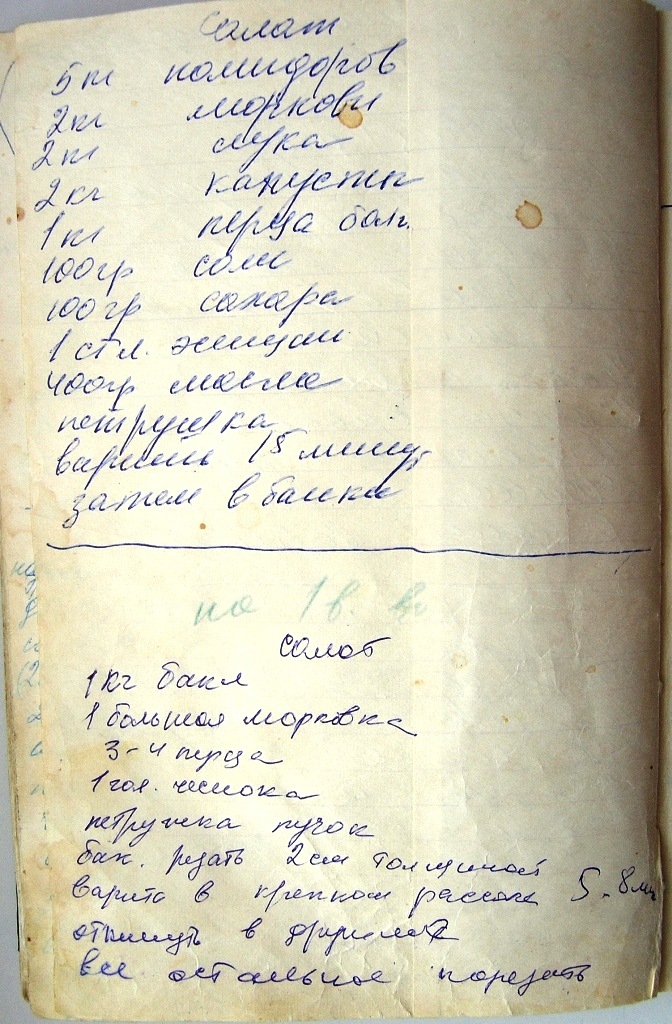 Салат
5кг помидоров
2кг моркови
2кг лука
2кг капусты
1кг перца болг.
100гр соли
100гр сахара
1 ст л. эссенции
400гр масла
петрушка
варить 15 минут
затем в банки
на 1в.
салат
1кг бакл
1 большая морковка
3-4 перца
1гол. чеснока
петрушка пучок
бак. резать 2см толщиной
варить в крепком рассоле 5-8 мин
откинуть в друшлаг
все остальное порезать